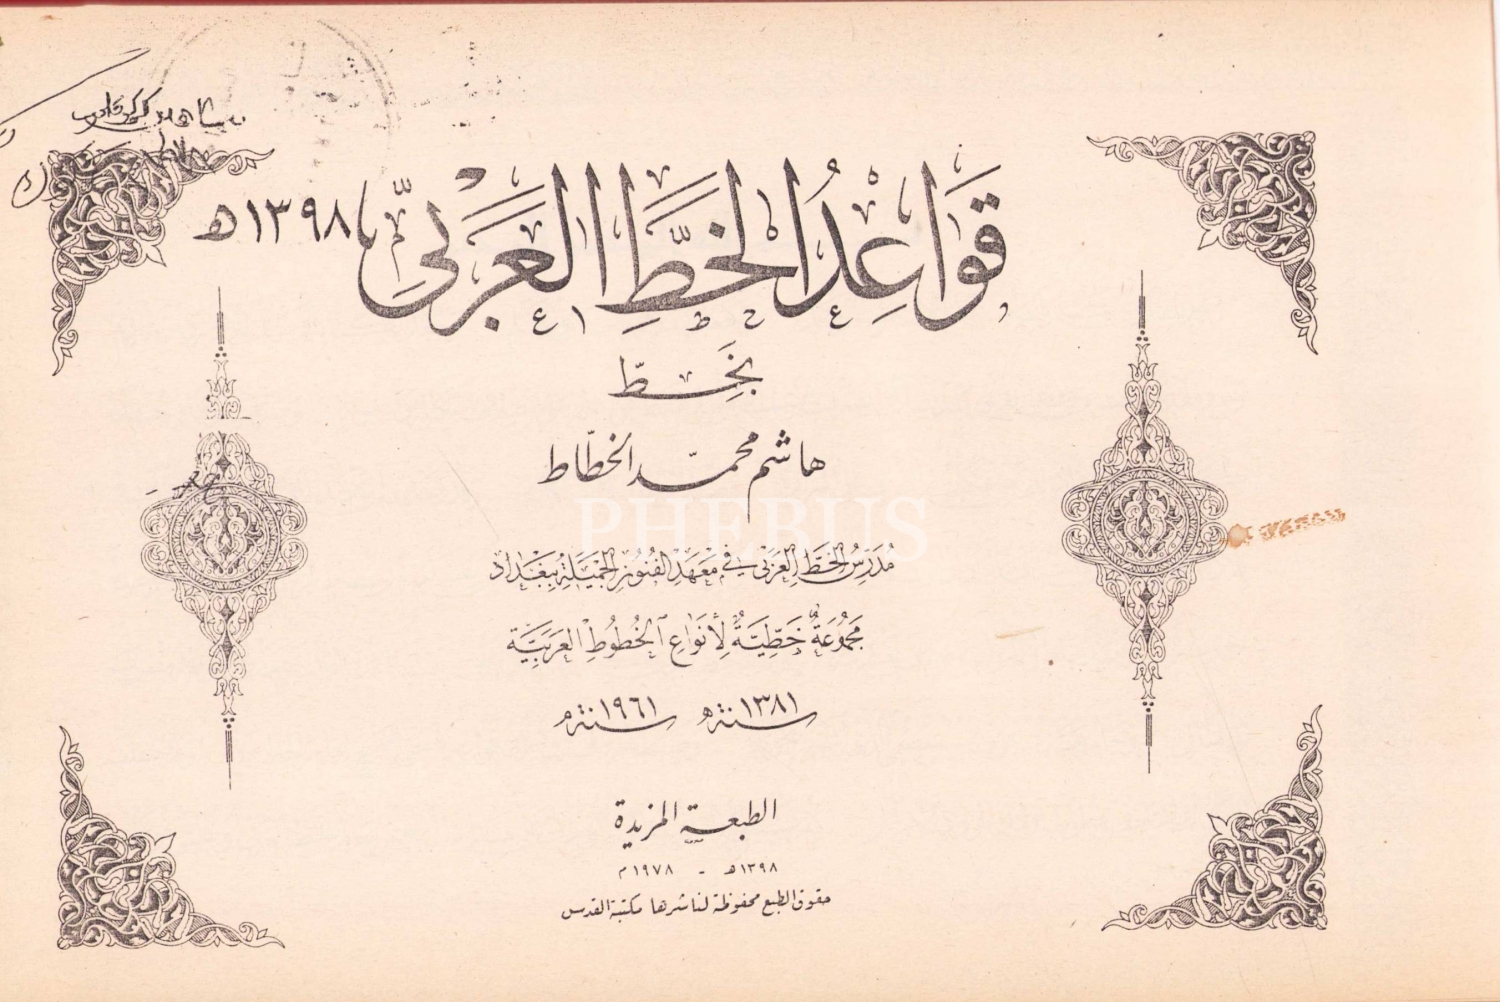 قَوَاعِدُ الخَطِّ العَرَبيِّ ١٣٩٨هـ
بخَطّ
هاشم محمّد الخطّاط
PHEBUS
مُدَرِّسُ الخَطِّ العَرَبي في مَعهَدِ الفُنُونِ الجَميلَةِ ببَغْدَاد
مَجمُوعَةٌ خَطِّيَّةٌ لِأَنوَاعِ ٱلخُطُوطِ العَرَبيَّةِ
سنة ١٣٨١ هـ سنة ١٩٦١ م
الطبعة المزيدة
١٣٩٨هـ - ١٩٧٨م
حقوق الطبع محفوظة لناشرها مكتبة القدس